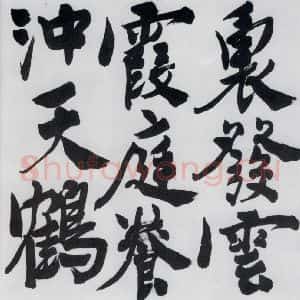 裏發雲
霞庭養
沖天鶴
Shufawang.CN